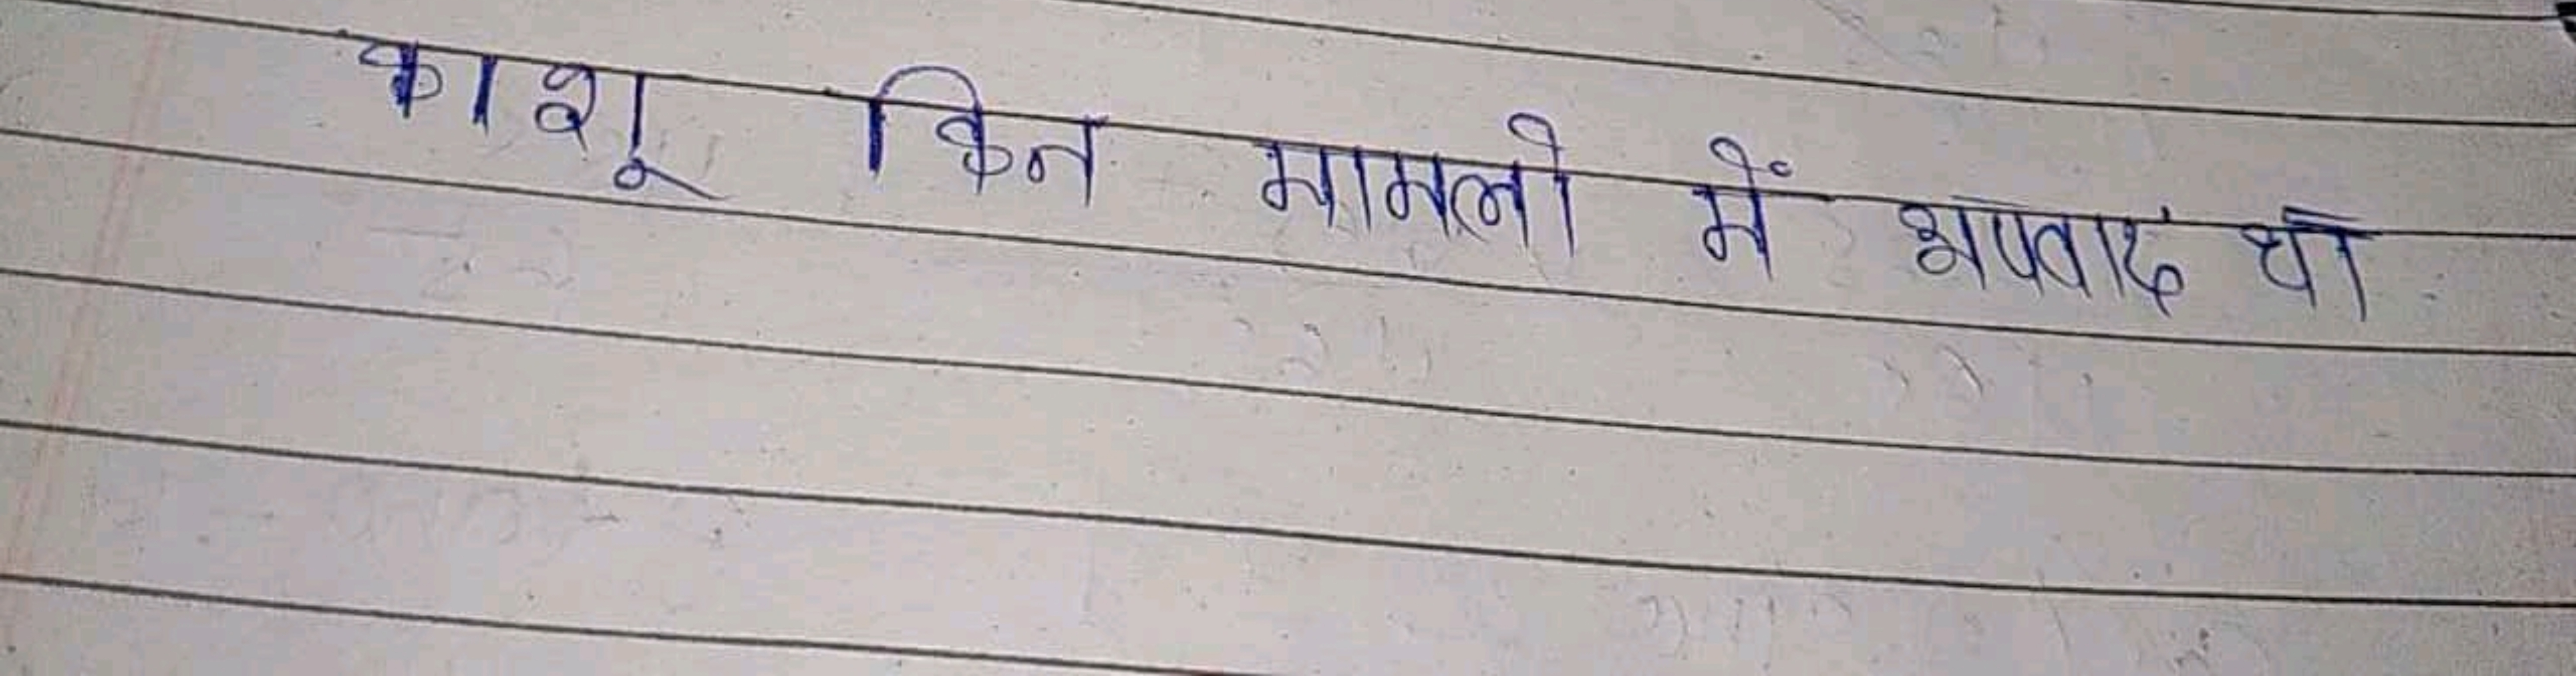 काशू किन मामलो में अपवाद था